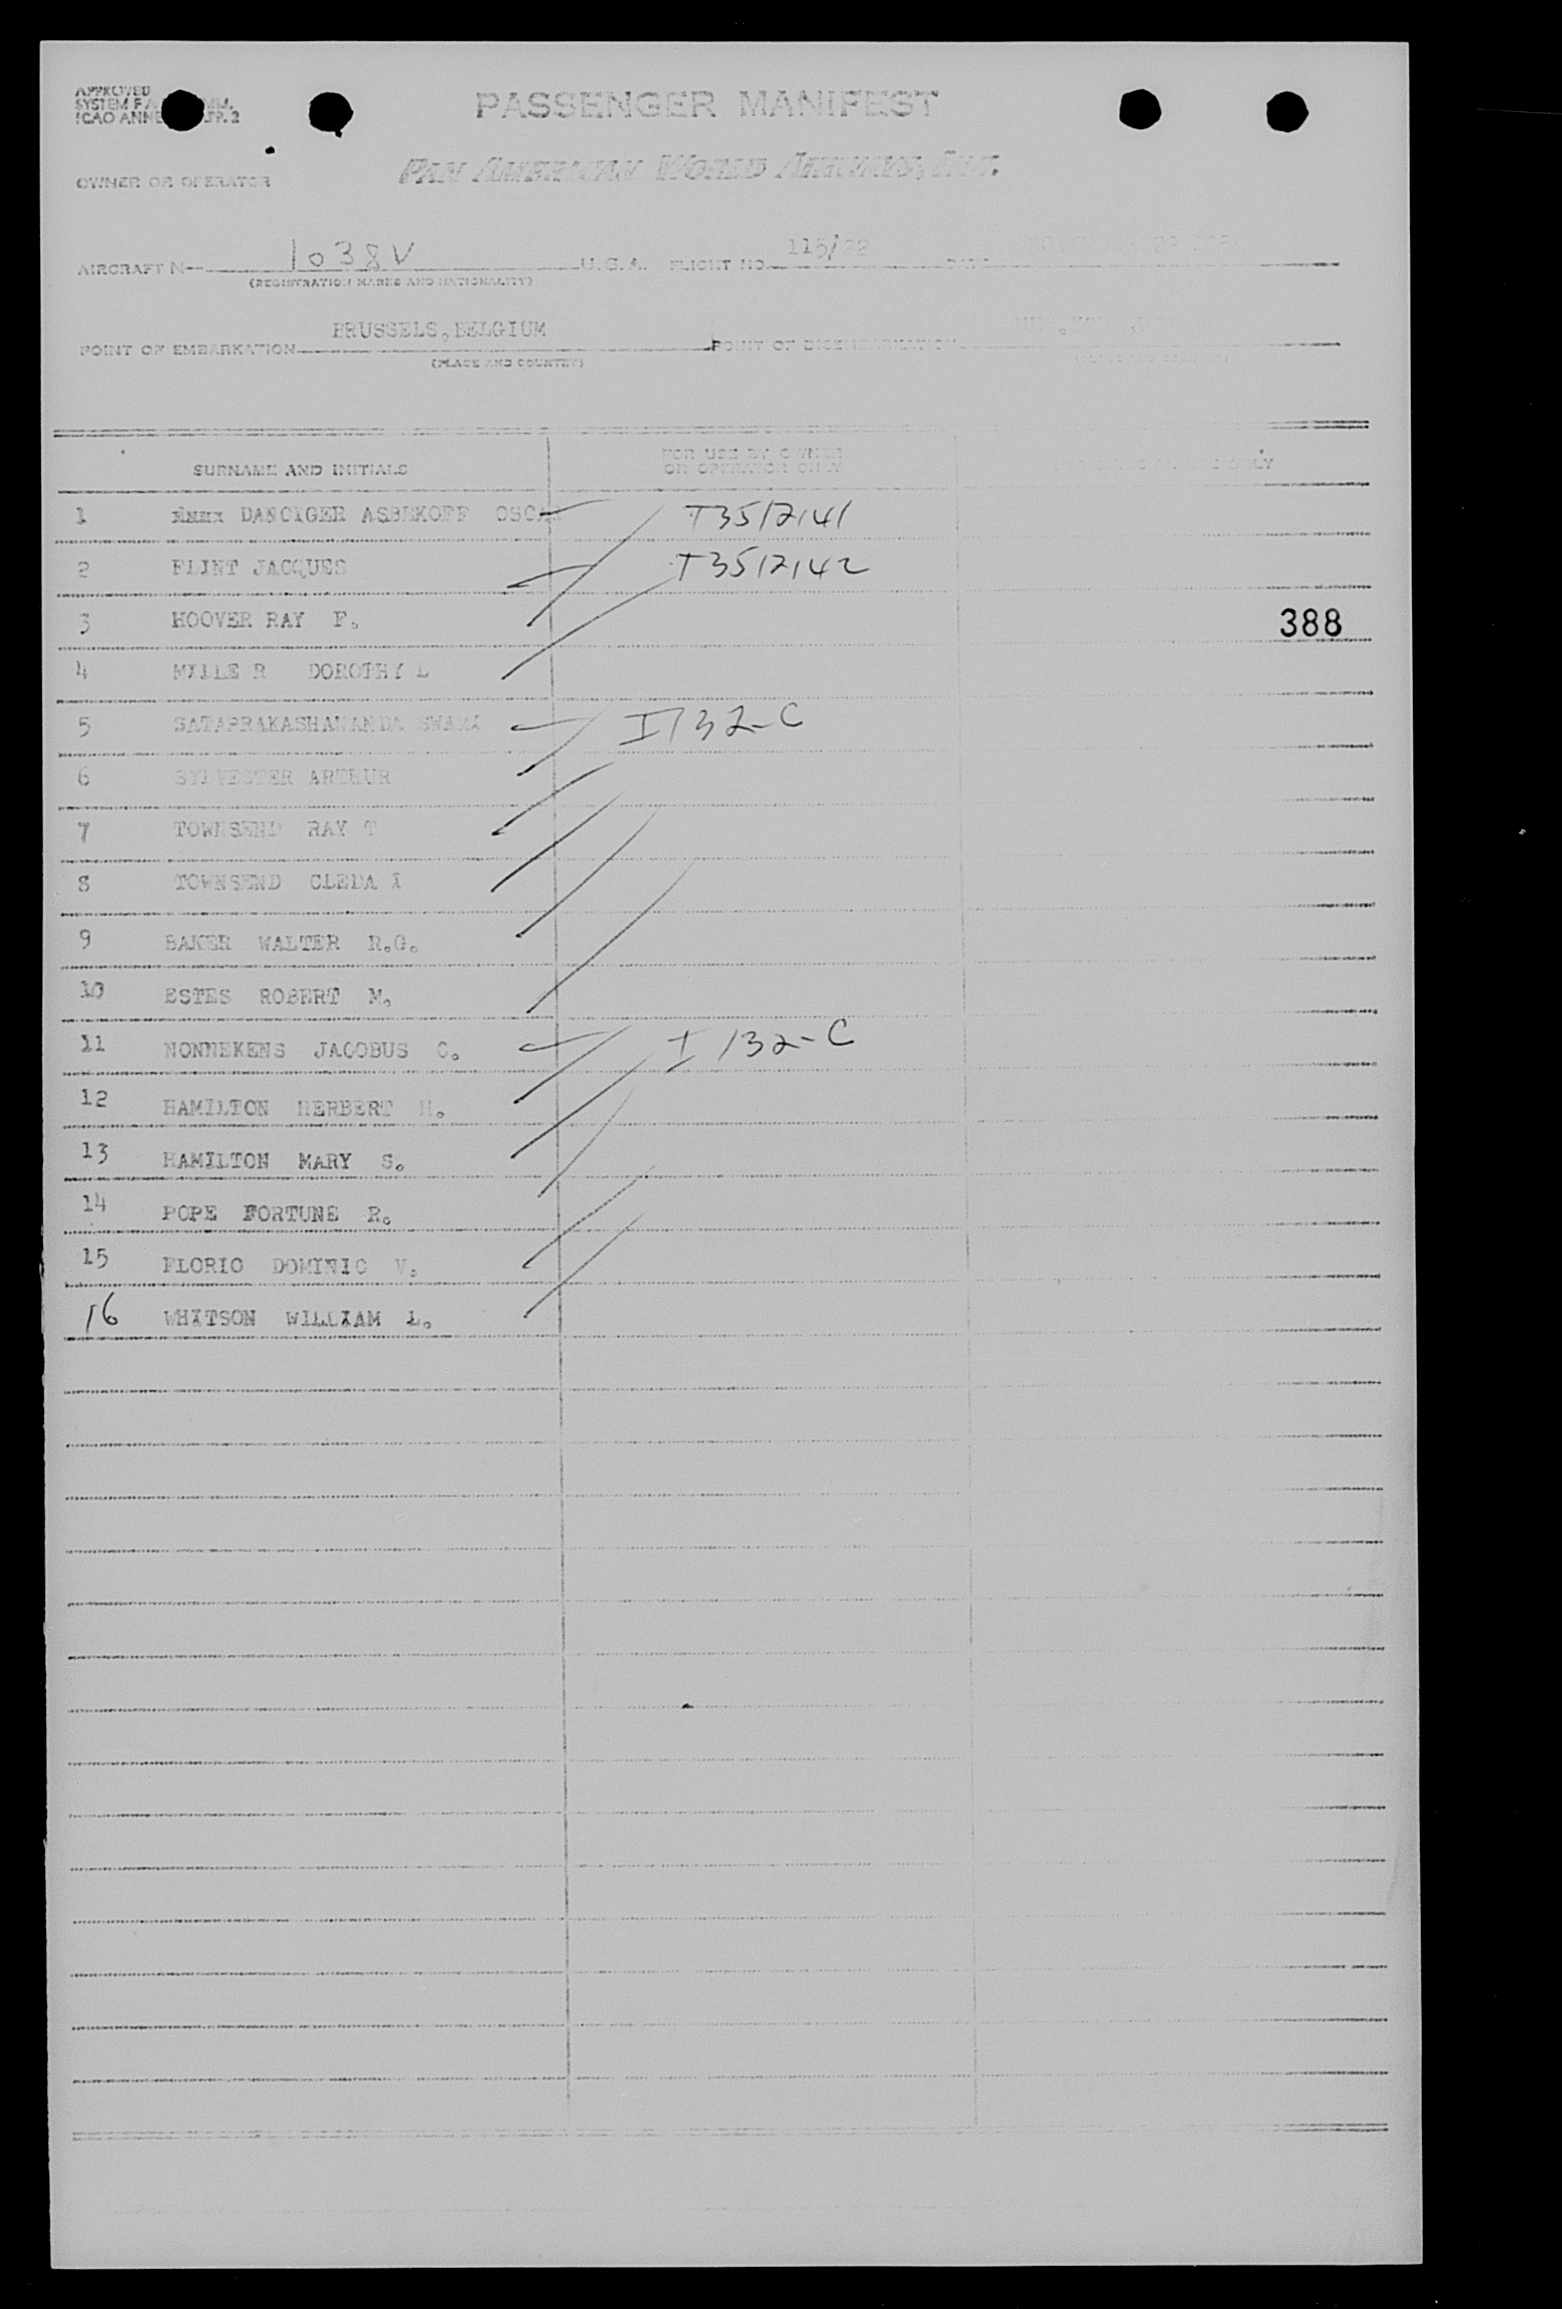 APPROVED
SYSTEM
ICAO ANNE 2
PASSENGER MANIFEST
OWNER OR OPERATOR PAN AMERICAN WORLD AIRWAYS, INC.
AIRCRAFT N 1038V U.S.A. FLIGHT NO. 115/
(REGISTRATION MARKS AND NATIONALITY)
POINT OF EMBARKATION BRUSSELS, BELGIUM POINT OF DISEMBARKATION
(PLACE AND COUNTRY)
SURNAME AND INITIALS FOR USE BY OWNER OR OPERATOR ONLY
1 DANCIGER ASBEKOFF OSCAR T3512141
2 FLINT JACQUES T3512142
3 HOOVER RAY F. 388
4 MILLE R DOROTHY L
5 SATAPRAKASHANANDA SWAMI I132-C
6 SYLVESTER ARTHUR
7 TOWNSEND RAY T
8 TOWNSEND CLEDA I
9 BAKER WALTER R.G.
10 ESTES ROBERT M.
11 NONNEKENS JACOBUS C. I 132-C
12 HAMILTON HERBERT H.
13 HAMILTON MARY S.
14 POPE FORTUNE R.
15 FLORIO DOMINIC V.
16 WHITSON WILLIAM L.